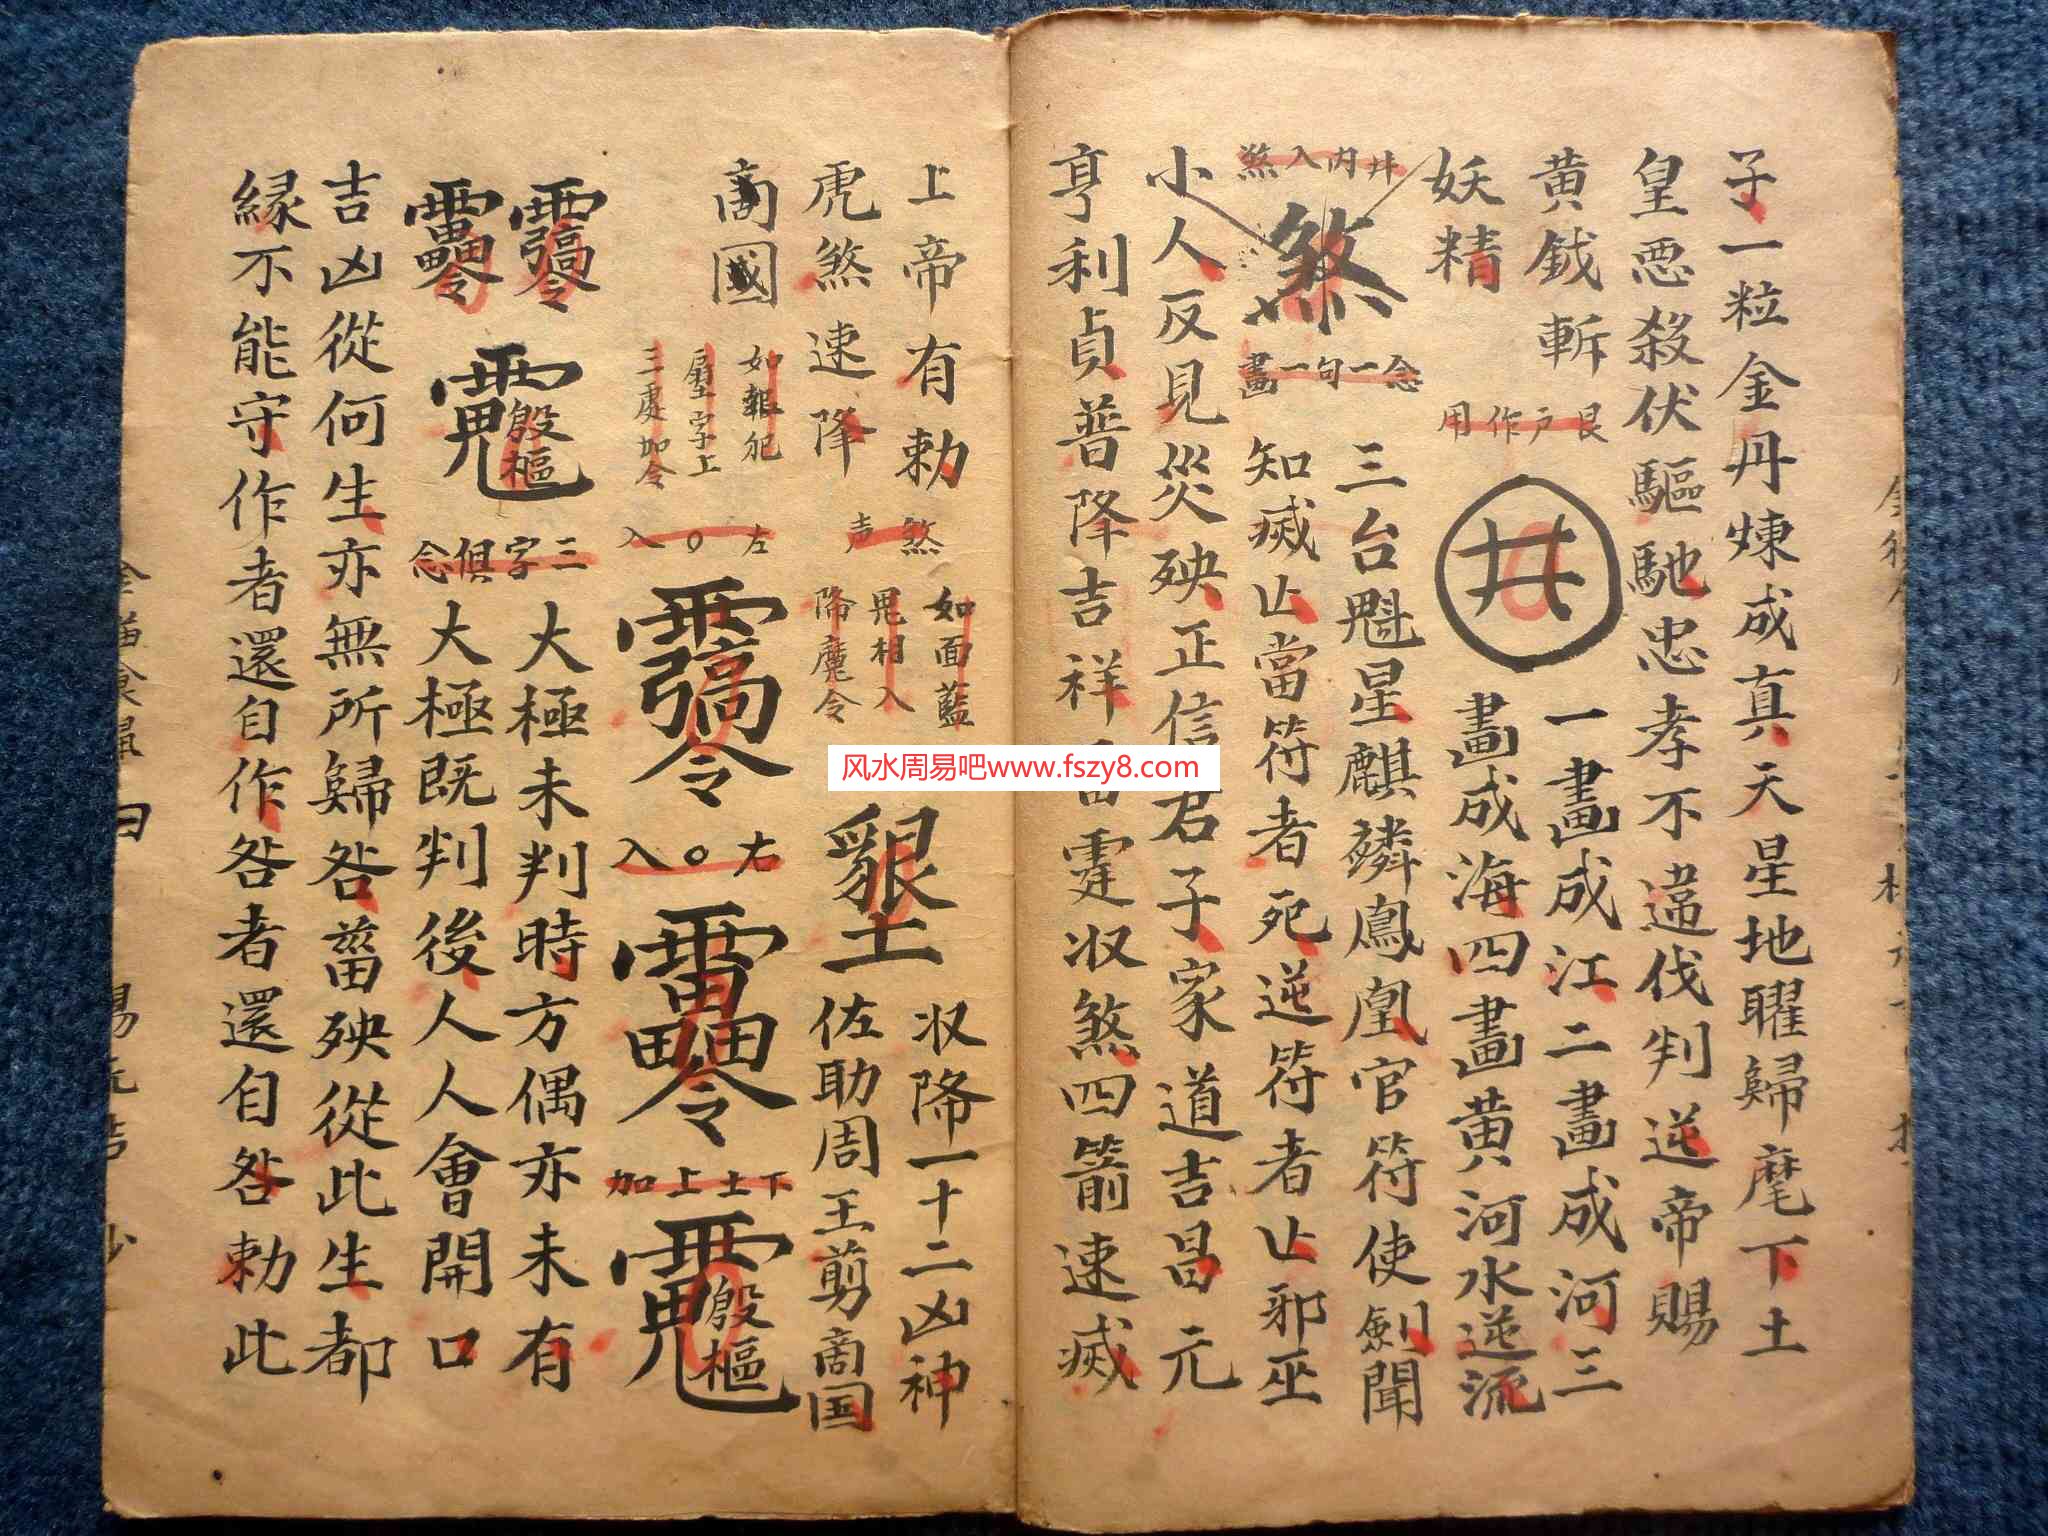 子一粒金丹煉成真天星地曜歸麾下土
皇恶殺伏驅馳忠孝不違伐判逆帝賜
黄鉞斬
妖精
艮戶作用
井
一畫成江二畫成河三
畫成海四畫黄河水逆流
三台魁星麒麟鳳凰官符使劍聞
井内入煞
煞
念一句一畫
知滅止當符者死逆符者止邪巫
小人反見災殃正信君子家道吉昌元
亨利貞普降吉祥
霆收煞四箭速滅
风水周易吧www.fszy8.com
上帝有勅煞
如面藍
鬼相入
降魔令
收降一十二凶神
虎煞速降声
佐助周王剪商国
商國
如報犯
字上
三處加令
左〇入
右〇入
下土上加
殷樞
殷樞
三字俱念
大極未判時方偶亦未有
大極既判後人人會開口
吉凶從何生亦無所歸咎菑殃從此生都
緣不能守作者還自作咎者還自咎勅此